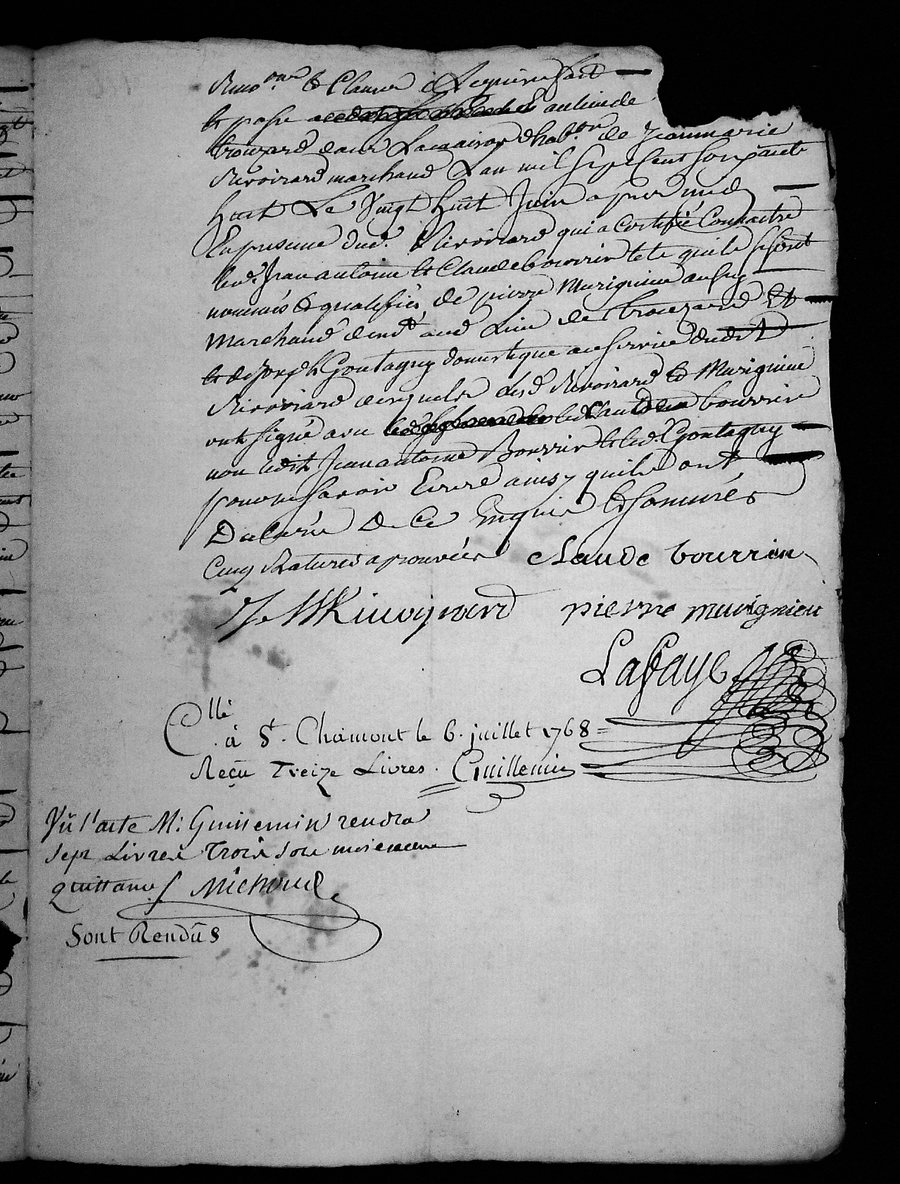 Renõn & Clause à Requise fait
et passé au lieu de
trouzard dans la maison d'habon de Jean marie
Rivoirard marchand L'an mil sept cent soixante
huit Le Vingt huit Juin apres midy
En presence dud. Rivoirard qui a certifié Connaitre
led. Jean antoine & Claude bourrin et qu'ils sont
nommés & qualifiés de pierre Murignieu aussy
marchand demt aud. Lieu de trouzard Et
et de Joseph Gontaguy domestique au service dudit
Rivoirard desquels lesd Rivoirard & Murignieu
ont signé avec led. Claude bourrin
non ledit Jean antoine Bourrin et led Gontaguy
pour ne savoir Ecrire ainsy quils ont
Declaré de ce Enquis & sommés
Cinq Ratures aprouvées claude bourrin
J M Rivoyrard pierre murignieu
Lafaye
Cllé
à St. Chamont le 6. juillet 1768
Reçu Treize Livres. Guillemin
Vû l'acte Mr Guillemin rendra
sept Livres Trois sols
quittance Michoud
Sont Rendûs